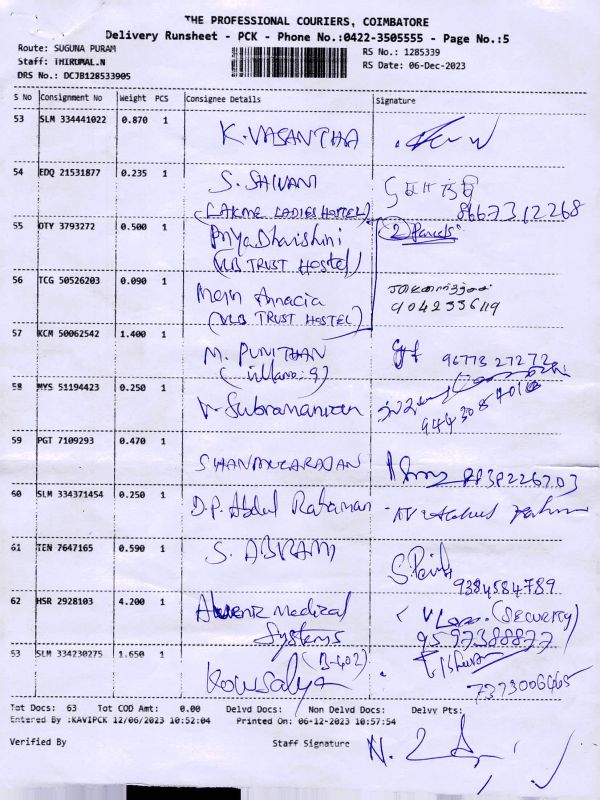 THE PROFESSIONAL COURIERS, COIMBATORE
Delivery Runsheet - PCK - Phone No.:0422-3505555 - Page No.:5
Route: SUGUNA PURAM
RS No.: 1285339
Staff: THIRUMAL.N
RS Date: 06-Dec-2023
DRS No.: DCJB128533905
S No Consignment No Weight PCS Consignee Details Signature
53 SLM 334441022 0.870 1 K.VASANTHA
54 EDQ 21531877 0.235 1 S. SHIVANI
(LAKME LADIES HOSTEL) 8667312268
55 OTY 3793272 0.500 1 PriyaDharshini 2 Parcels
(VLB TRUST HOSTEL)
56 TCG 50526203 0.090 1 Annacia
(VLB TRUST HOSTEL)
57 KCM 50062542 1.400 1 M. PUNITHAN 96773 27272
58 MYS 51194423 0.250 1 V. Subramaniyan
59 PGT 7109293 0.470 1 SHANMUGARAJAN
60 SLM 334371454 0.250 1 D.P. Abdul Rahaman
61 TEN 7647165 0.590 1 S. ABRAMI
9384584789
62 HSR 2928103 4.200 1 Medical (SECURITY)
Systems 9597388877
53 SLM 334230275 1.650 1 Kowsalya (B-402)
Tot Docs: 63 Tot COD Amt: 0.00 Delvd Docs: Non Delvd Docs: Delvy Pts:
Entered By :KAVIPCK 12/06/2023 10:52:04 Printed On: 06-12-2023 10:57:54
Verified By Staff Signature